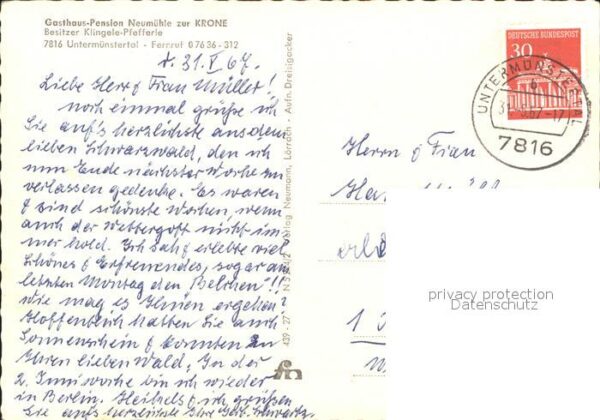 Gasthaus-Pension Neumühle zur KRONE
Besitzer Klingele-Pfefferle
7816 Untermünstertal - Fernruf 0 76 36 - 312
31. V 67.
Liebe Herr & Frau Müller!
noch einmal grüße ich
Sie aufs herzlichste aus dem
lieben Schwarzwald, den ich
nun Ende nächster Woche zu
verlassen gedenke. Es waren
& sind schönste Wochen, wenn
auch der Wettergott nicht im
mer hold. Ich sah & erlebte viel
Schönes & Erfreuendes, sogar am
letzten Montag den Belchen!!
Wie mag es Ihnen ergehen?
Hoffentlich hatten Sie auch
Sonnenschein & konnten in
Ihren lieben Wald. In der
2. Juniwoche bin ich wieder
in Berlin. & ich grüßen
Sie aufs herzlichste Ihre
Verlag Neumann, Lörrach - Aufn. Dreisigacker
439 - 27
fn
DEUTSCHE BUNDESPOST
30
UNTERMÜNSTERTAL
7816
Herrn & Frau
privacy protection
Datenschutz
1